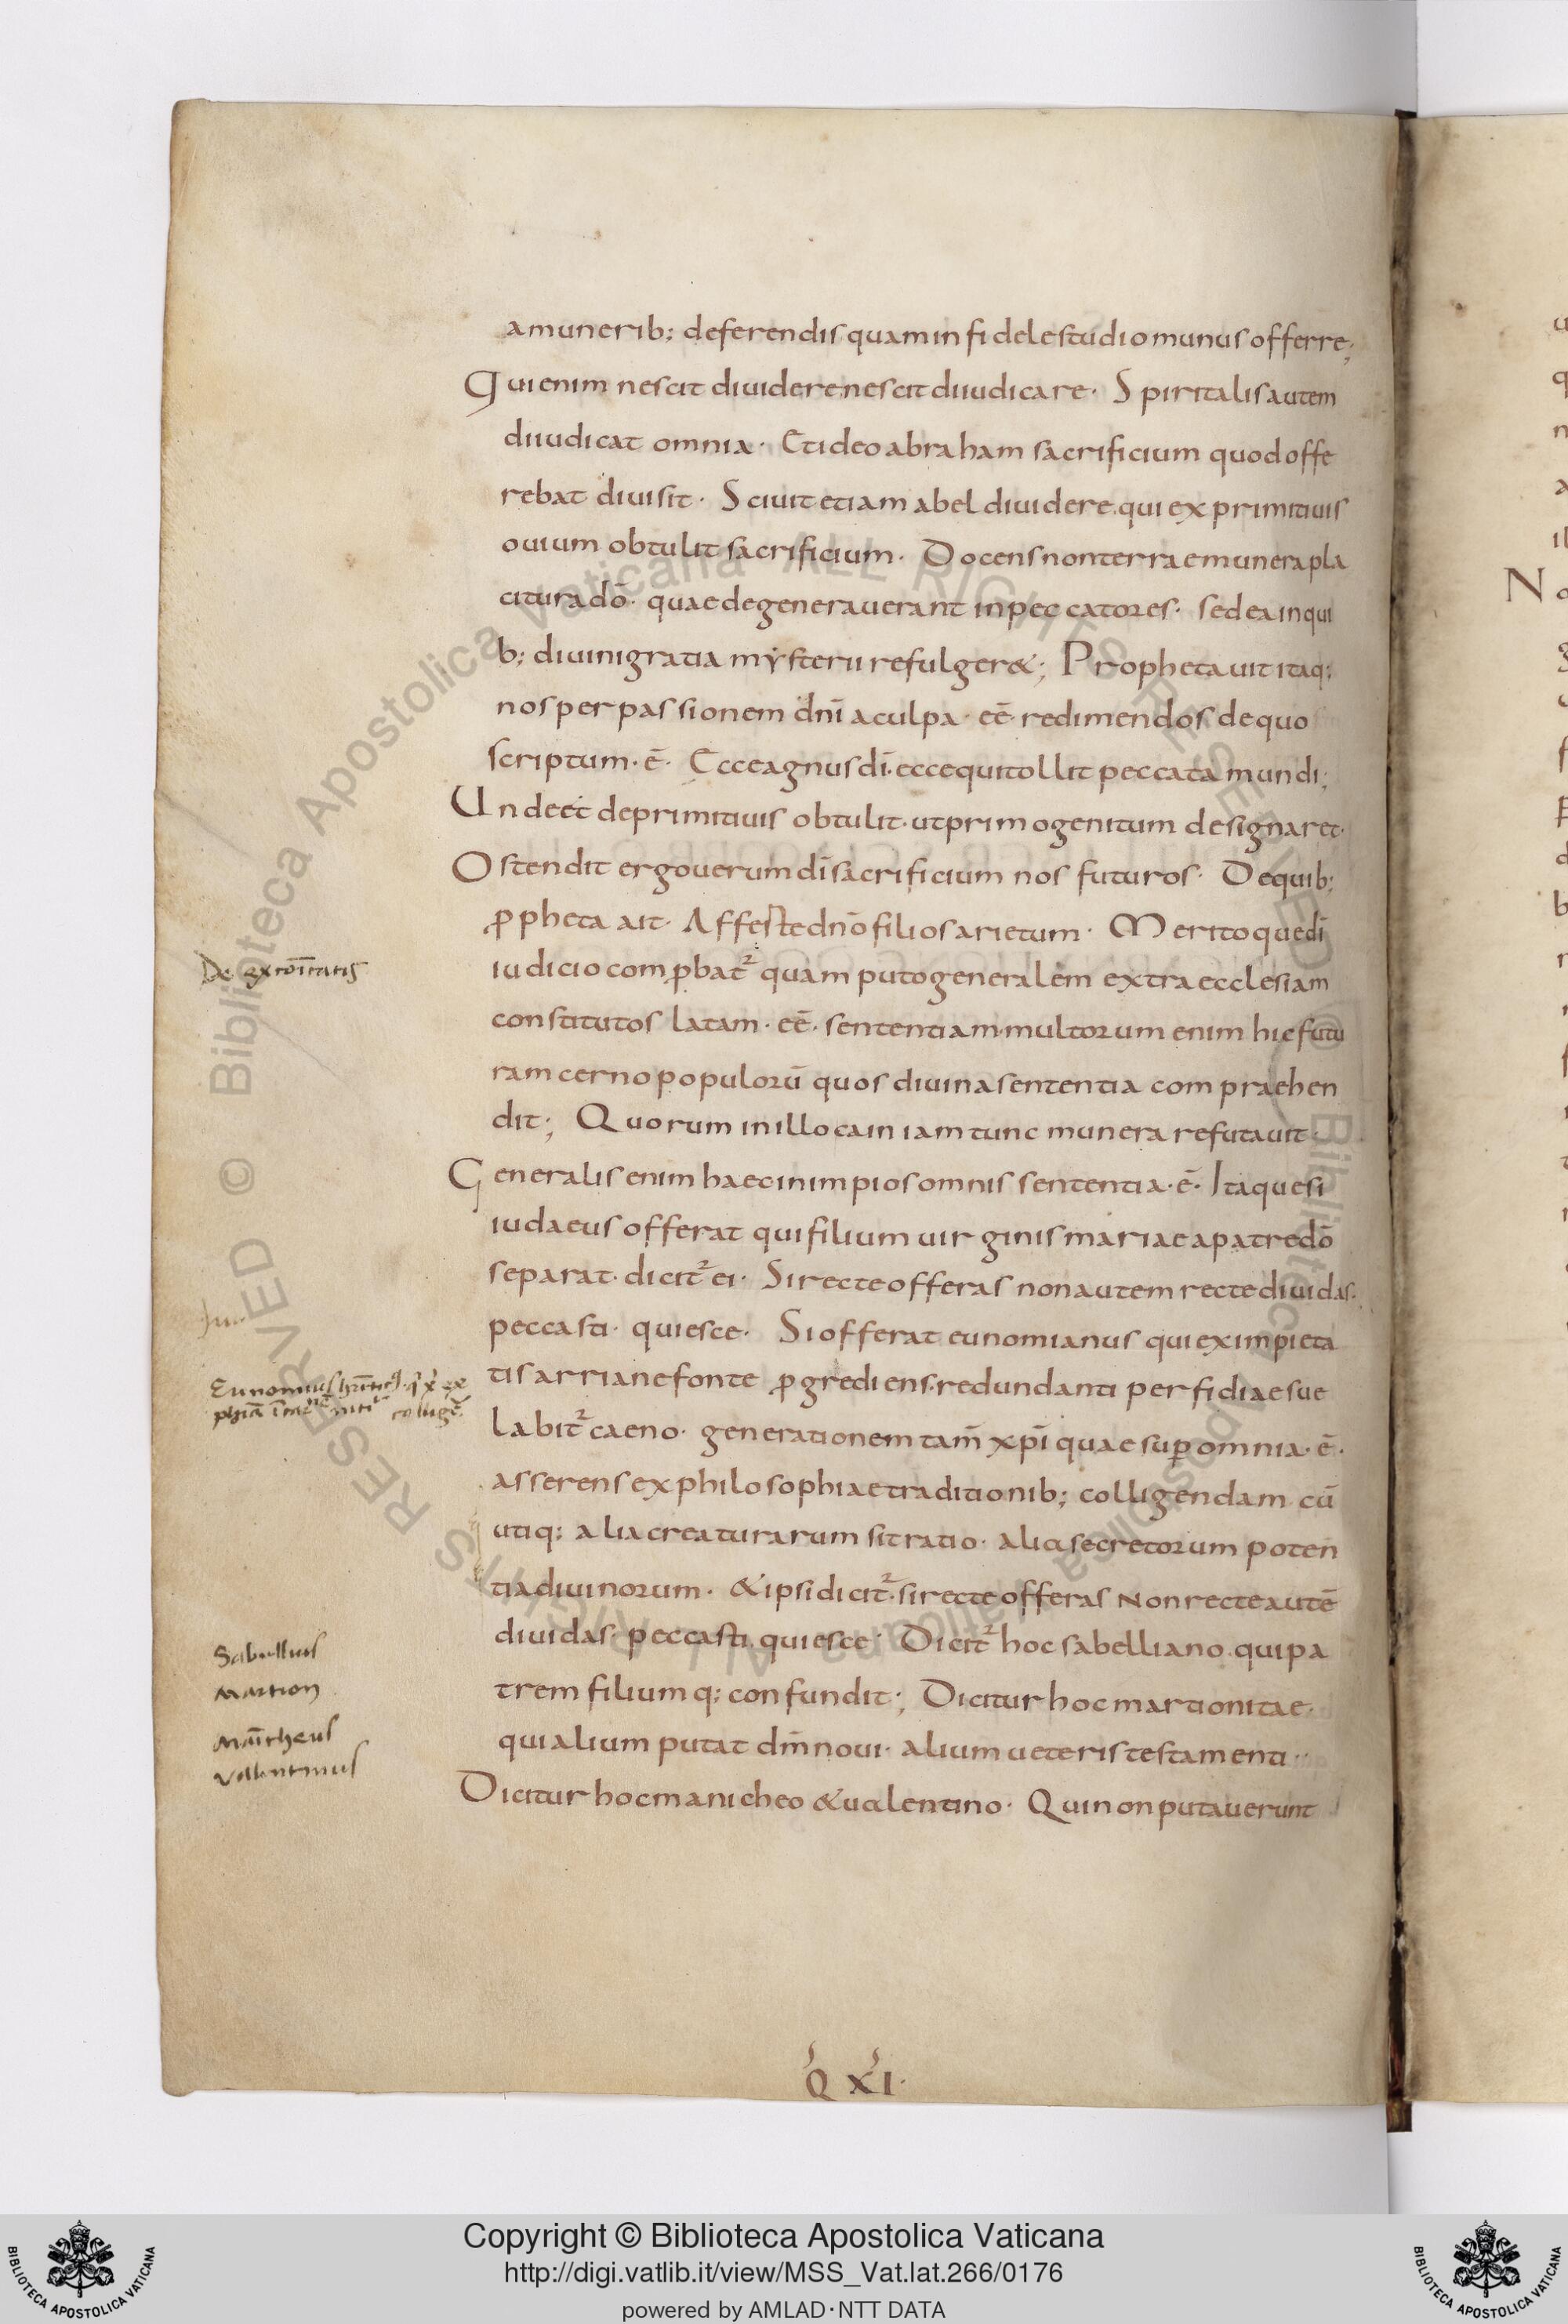 amunerib; deferendis quam infidele studio munus offerre;
Qui enim nescit dividere nescit diiudicare· Spiritalis autem
diiudicat omnia· Et ideo abraham sacrificium quod offe
rebat diuisit· Sciuit etiam abel diuidere qui ex primitiuis
ouium obtulit sacrificium· Docens non terrae munera pla
citura dō· quae degenerauerant in peccatores· sed ea in qui
b; diuini gratia mysterii refulger&; Prophetauit itaq;
nos per passionem dn̄i a culpa· eē· redimendos de quo
scriptum· ē· Ecce agnus dī· ecce qui tollit peccata mundi;
Unde et de primitiuis obtulit· ut primogenitum designaret·
Ostendit ergo uerum dī sacrificium nos futuros· De quib;
ꝓpheta ait· Afferte dn̄o filios arietum· Meritoque dī
iudicio comꝓbat² quam puto generalem extra ecclesiam
constitutos latam· eē· sententiam· multorum enim hic futu
ram cerno populorū quos diuina sententia compraehen
dit; Quorum in illo cain iam tunc munera refutauit·
Generalis enim haec in impios omnis sententia· ē· Itaque si
iudaeus offerat qui filium uirginis mariae a patre dō
separat· dicit² ei· Si recte offeras non autem recte diuidas·
peccasti· quiesce· Si offerat eunomianus qui ex impieta
tis arriane fonte ꝓgrediens· redundanti perfidiae sue
labit² caeno· generationem tam̄ xp̄i quae suꝑ omnia· ē·
asserens ex philosophiae traditionib; colligendam cū
utiq; alia creaturarum sit ratio· alia secretorum poten
tia diuinorum· & ipsi dicit²· si recte offeras Non recte autē
diuidas· peccasti quiesce· Dicit² hoc sabelliano qui pa
trem filiumq; confundit; Dicitur hoc martionitae·
qui alium putat dm̄ noui· alium ueteris testamenti··
Dicitur hoc manicheo & ualentino· Qui non putauerunt
Eunomius
Sabellius
Martion
Manicheus
Valentinus
Q XI·
Biblioteca Apostolica Vaticana ALL RIGHTS RESERVED ©
Copyright © Biblioteca Apostolica Vaticana
http://digi.vatlib.it/view/MSS_Vat.lat.266/0176
powered by AMLAD·NTT DATA
BIBLIOTECA APOSTOLICA VATICANA
BIBLIOTECA APOSTOLICA VATICANA